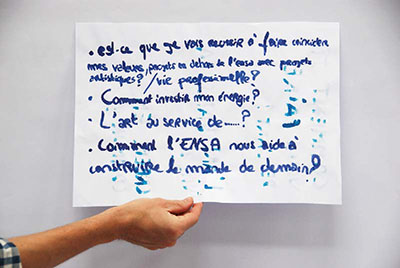 • Est-ce que je vais réussir à faire coïncider
mes valeurs, projets en dehors de l'ensa avec projets
artistiques? / vie professionnelle?
• Comment investir mon énergie?
• L'art au service de.....?
• Comment l'ENSA nous aide à
construire le monde de demain?